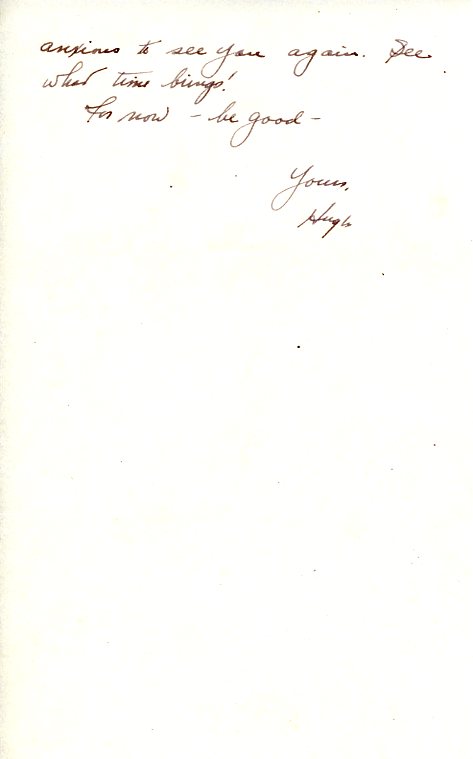 anxious to see you again. See
what time brings!
For now – be good –
Yours,
Hugh